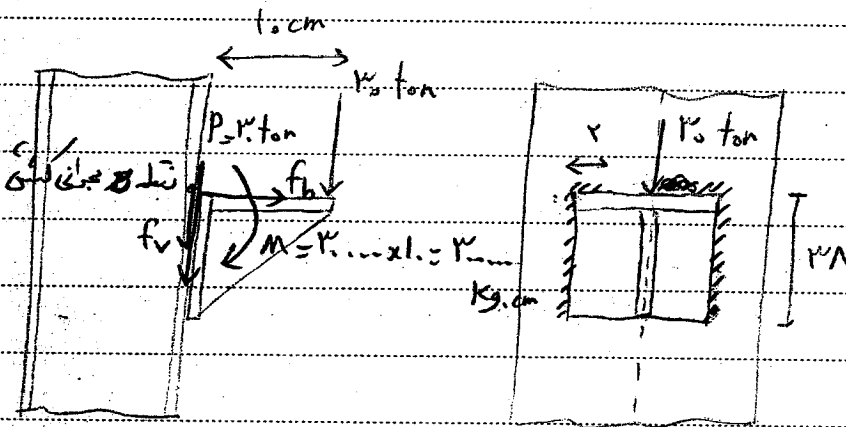 ۱۰ cm
۳۰ ton
P=۳۰ ton
نقطه بحرانی کششی
f_b
f_v
M = ۳۰۰۰۰ x۱۰ = ۳۰۰۰۰۰
Kg.cm
۲
۳۰ ton
۳۸